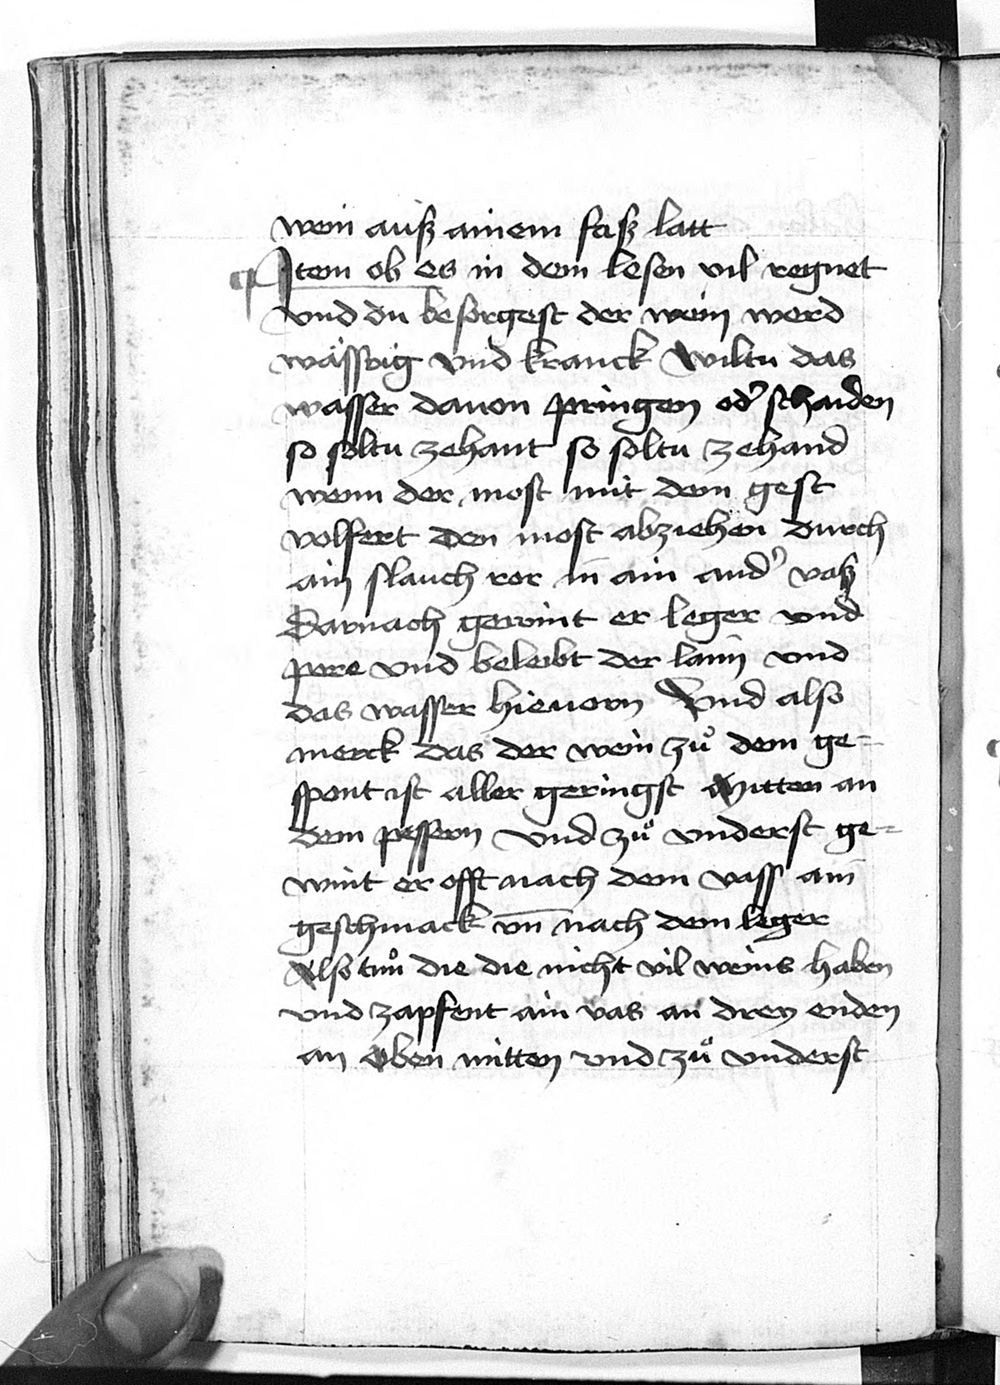 wein auß ainem faß latt
¶ Item ob es in dem lesen vil regnet
vnd du besorgest der wein werd
wässrig vnd kranck Wiltu das
wasser dauon pringen od' schaiden
so soltu zehant so soltu zehand
wenn der most mit dem gest
volfert den most abziehen durch
ain slauch ror in ain and' vaß
Darnach gewint er leger vnd
pere vnd beleibt der laim vnd
das wasser hieuorn Vnd also
merck das der wein zuͦ dem ge=
spont ist aller geringst Mitten an
dem pessern vnd zuͦ vnderst ge=
wint er offt nach dem vass ain
geschmack vn̄ nach dem leger
Also tuͦn die die nicht vil weins haben
vnd zapfent ain vas an drey enden
an oben mitten vnd zuͦ vnderst